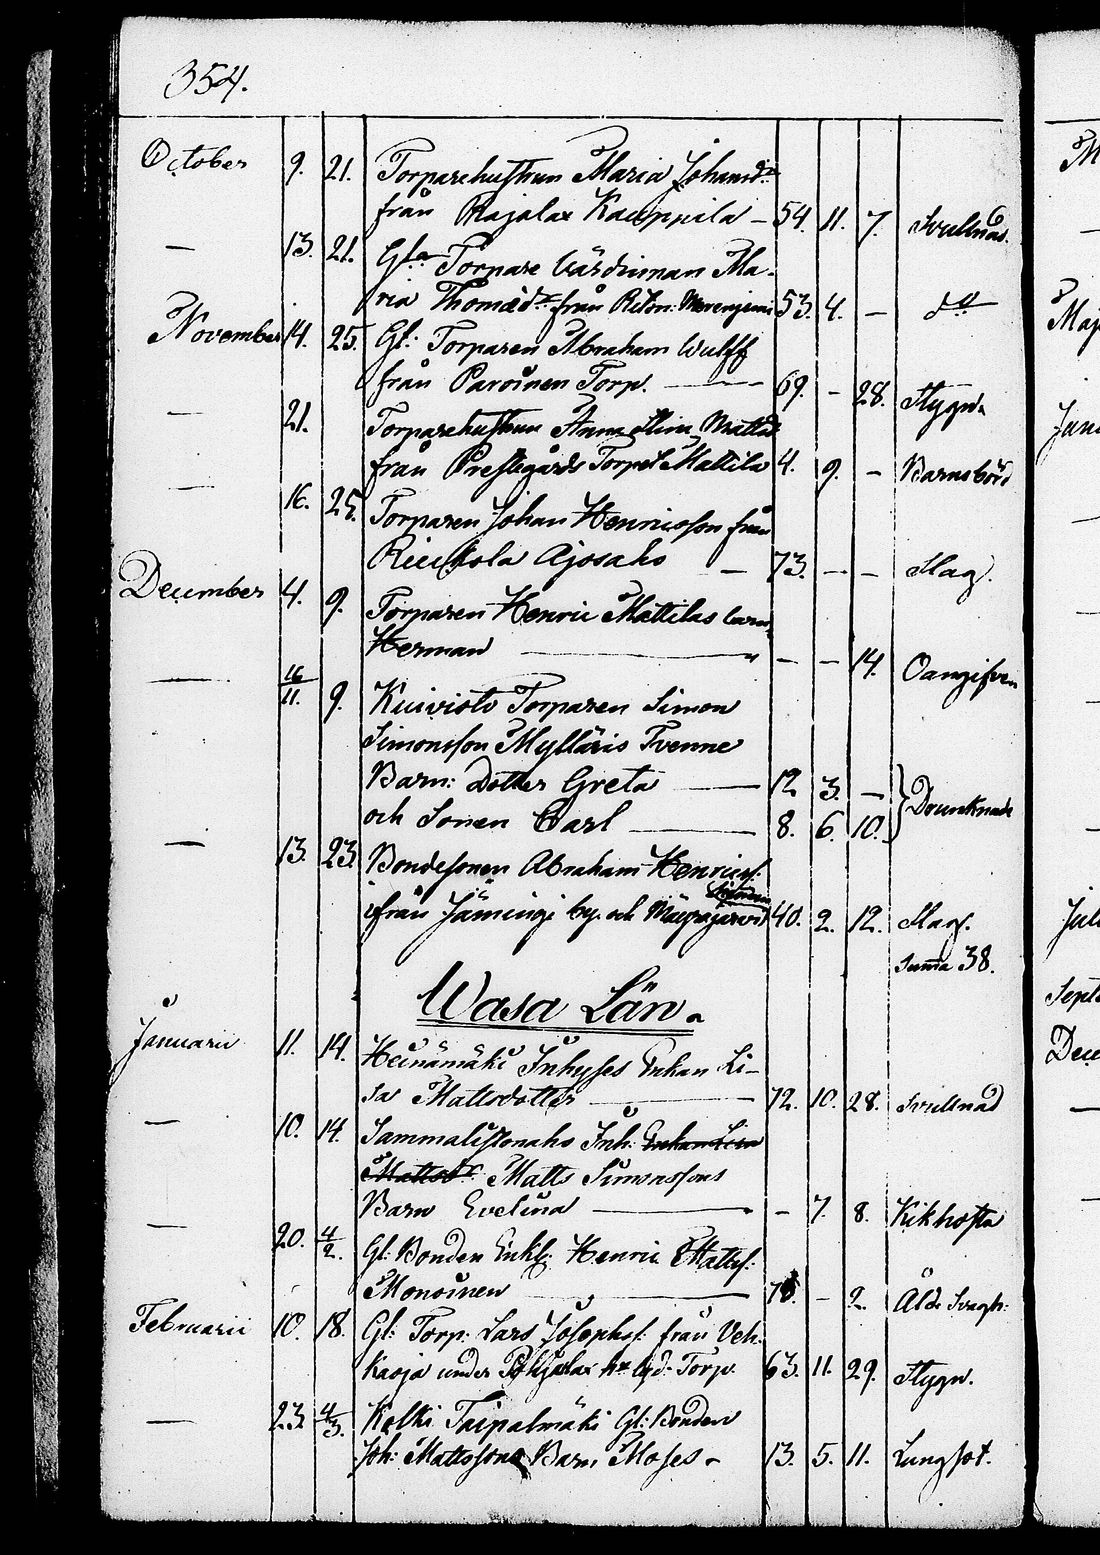 354.
October 9. 21. Torparehustrun Maria Johansdr
från Rajalax Kauppila – 54. 11. 7. Svullnad.
— 13. 21. Gla Torpare Värdinnan Ma-
ria Thomædr från 53. 4. — do
November 14. 25. Gl: Torparen Abraham Wulff
från Paroinen Torp. — 69. – 28. Stygn.
— 21. Torparehustrun Anna Mattsd
från Prestegårds Torpet Mattila 4. 9. – Barnsbörd
— 16. 25. Torparen Johan Henricsson från
Ajosaho — 73. — — Slag.
December 4. 9. Torparen Henric Mattilas barn
Herman — – – 14. Oangifven
— 16/11. 9. Kuivisto Torparen Simon
Simonsson Mylläris Tvenne
Barn: Dotter Greta — 12 3. — } Drunknade
och Sonen Carl — 8. 6. 10.
— 13. 23. Bondesonen Abraham Henricss:
ifrån Jäminge by och 40. 2. 12. Slag.
Summa 38.
Wasa Län.
Januarii 11. 14. Heinämäki Inhyses Enkan Li-
sa Mattsdotter — 72. 10. 28. Svullnad
— 10. 14. Sammalistonaho Inh: Enkan Lisa
Mattsdr Matts Simonssons
Barn Evelina — – 7. 8. Kikhosta
— 20. 4/2. Gl: Bonden Enkl: Henric Mattss:
Monoinen — – 2. Åld: Svagh:
Februarii 10. 18. Gl: Torp: Lars Josephss: från Veh-
kaoja under Torp. 63. 11. 29. Stygn.
— 23. 4/3. Kolki Taipalmäki Gl: Bonden
Joh: Mattssons Barn Moses – 13. 5. 11. Lungsot.